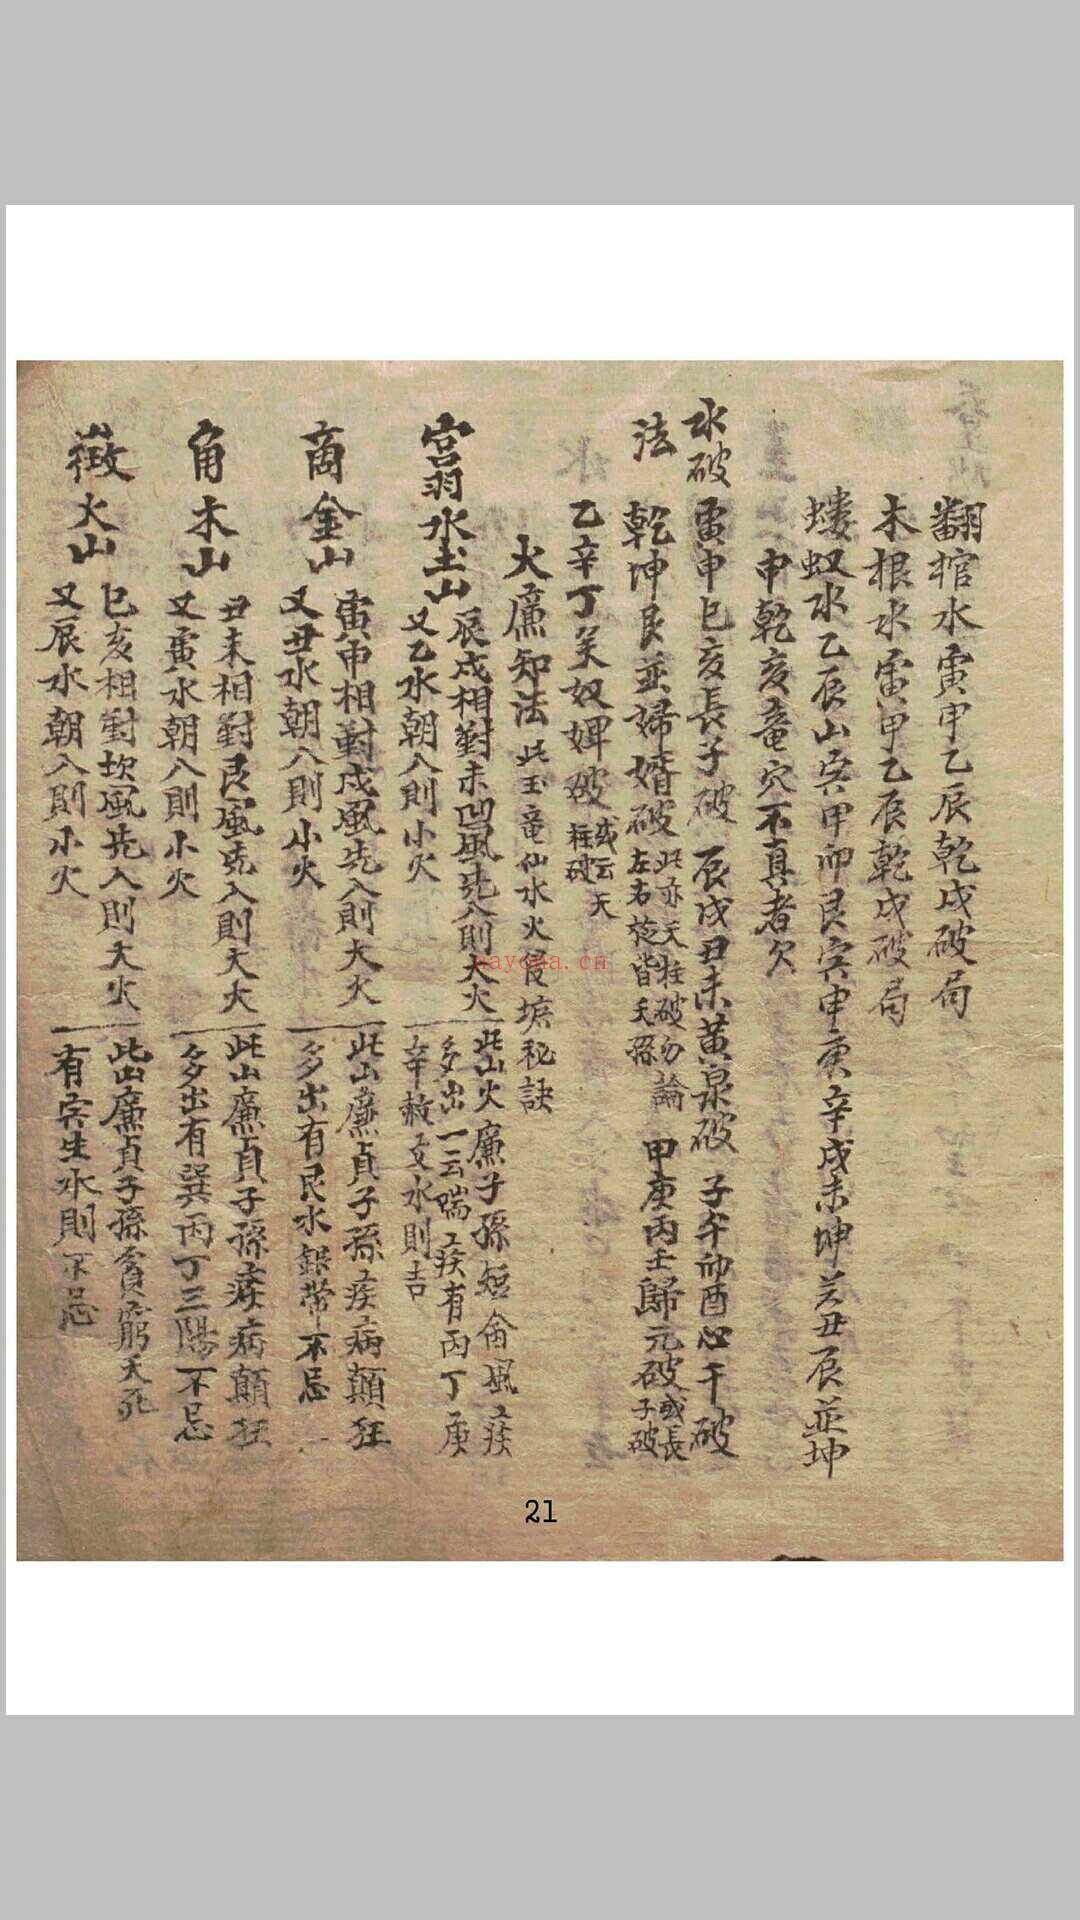 翻棺水寅申乙辰乾戌破局
木根水寅甲乙辰乾戌破局
螻蚁水乙辰山穴甲卯艮穴申庚辛戌未坤癸丑辰並坤
申乾亥竜穴不真者欠
水破 寅申巳亥長子破 辰戌丑未黄泉破 子午卯酉心干破
法 乾坤艮並婦婿破 此亦天柱破勿論 左右皆夭孫 甲庚丙壬歸元破 或長子破
乙辛丁癸奴婢破 或云天柱破
火廉知法 此玉竜仙水火秘訣
宮羽水土山 辰戌相對未凹風先入則大火
又乙水朝入則小火
此山火廉子孫短命風疾
多出一云喘疾有丙丁庚
辛赦文水則吉
商金山 寅申相對戌風先入則大火
又丑水朝入則小火
此山廉貞子孫疾病顛狂
多出有艮水銀帶不忌
角木山 丑未相對艮風先入則大火
又寅水朝入則小火
此山廉貞子孫疾病顛狂
多出有巽丙丁三陽不忌
徵火山 巳亥相對坎風先入則大火
又辰水朝入則小火
此山廉貞子孫貧窮夭死
有生水則不忌
nayona.cn
21